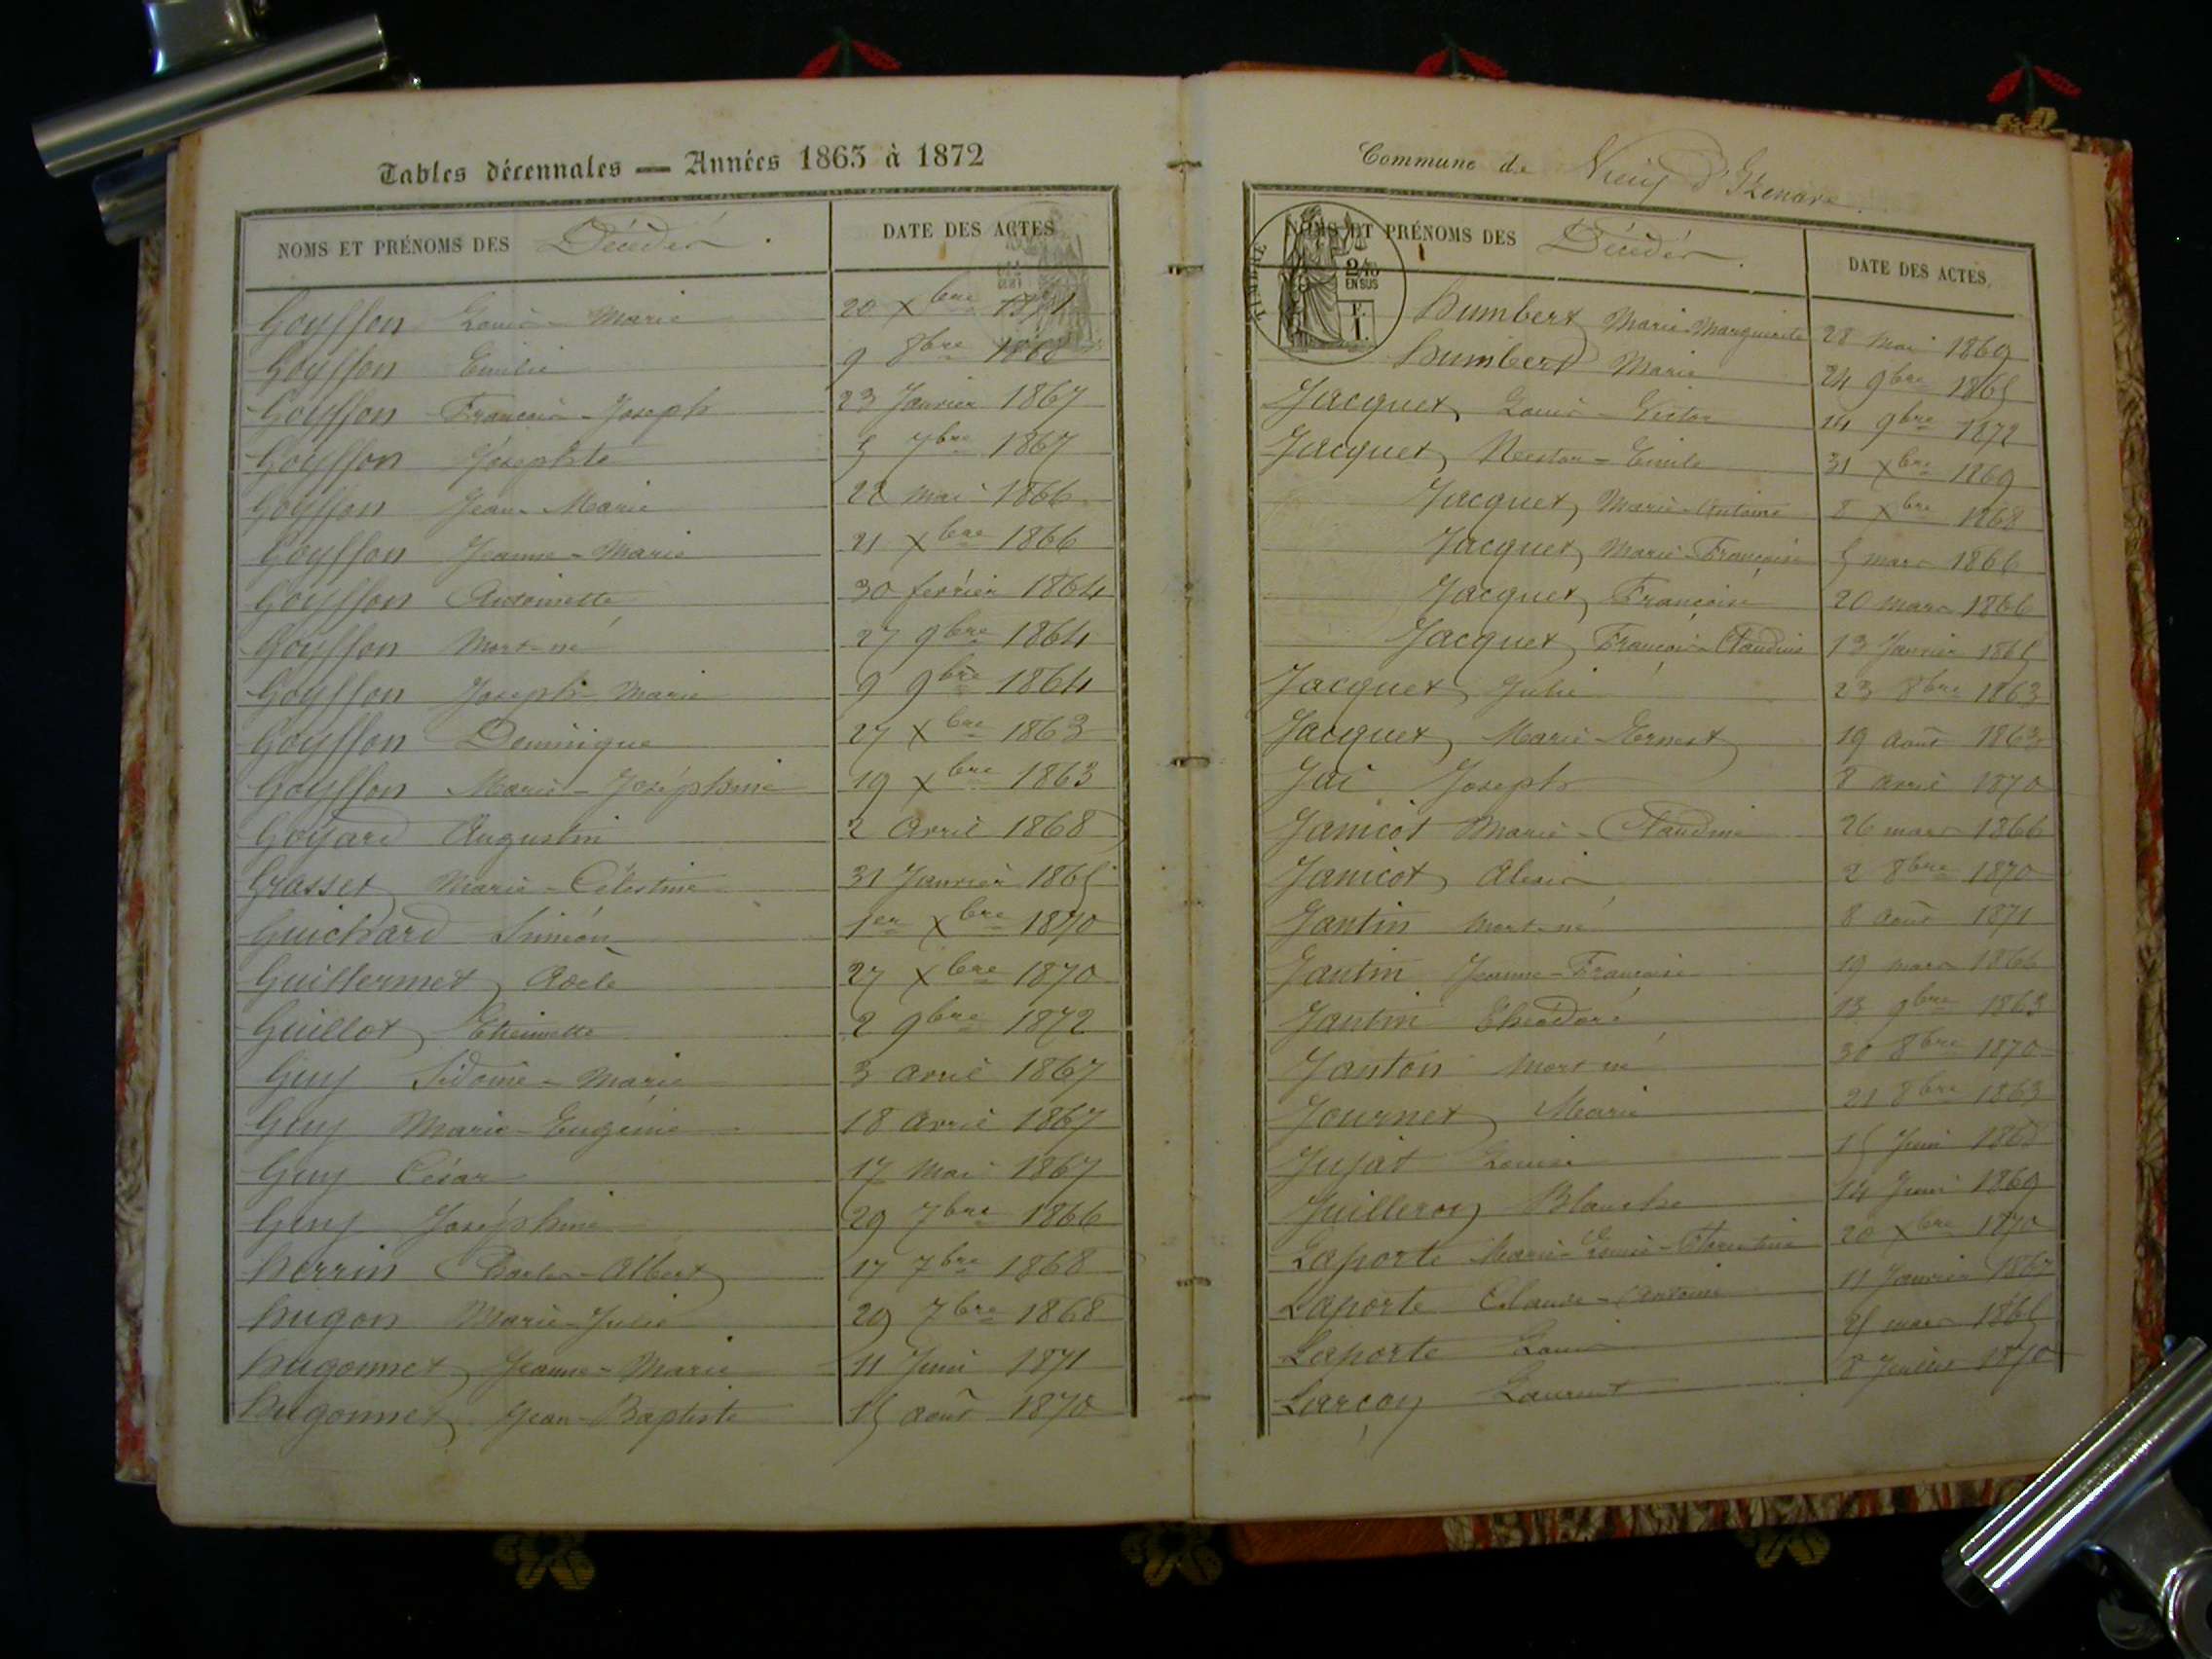 Tables décennales — Années 1863 à 1872
NOMS ET PRÉNOMS DES Décédés. DATE DES ACTES
Goyffon Louis-Marie 20 Xbre 1871
Goyffon Emilie 9 8bre 1868
Goyffon François-Joseph 23 Janvier 1867
Goyffon Josephte 5 7bre 1867
Goyffon Jean-Marie 28 mai 1866
Goyffon Jeanne-Marie 21 Xbre 1866
Goyffon Antoinette 30 février 1864
Goyffon Mort-né 27 9bre 1864
Goyffon Joseph-Marie 9 9bre 1864
Goyffon Dominique 27 Xbre 1863
Goyffon Marie-Joséphine 19 Xbre 1863
Goyard Augustin 2 Avril 1868
Grasset Marie-Célestine 31 Janvier 1865
Guichard Siméon 1er Xbre 1870
Guillermet Adèle 27 Xbre 1870
Guillot Etiennette 2 9bre 1872
Guy Sidonie-Marie 3 avril 1867
Guy Marie-Eugénie 18 avril 1867
Guy César 17 Mai 1867
Guy Joséphine 29 7bre 1866
Herrin Charles-Albert 17 7bre 1868
Hugon Marie-Julie 29 7bre 1868
Hugonnet Jeanne-Marie 11 Juin 1871
Hugonnet Jean-Baptiste 15 août 1870
Commune de Vieux d'Izenave
TIMBRE
2/10
EN SUS
F.
1.
NOMS ET PRÉNOMS DES Décédés. DATE DES ACTES.
Humbert Marie-Marguerite 28 Mai 1869
Humbert Marie 24 9bre 1865
Jacquet Louis-Victor 14 9bre 1872
Jacquet Nestor-Emile 31 Xbre 1869
Jacquet Marie-Antoine 8 Xbre 1868
Jacquet Marie-Françoise 5 mars 1866
Jacquet Françoise 20 mars 1866
Jacquet François-Claudius 13 Janvier 1865
Jacquet Julie 23 8bre 1863
Jacquet Marie-Ernest 19 août 1863
Jai Joseph 8 avril 1870
Janicot Marie-Claudine 26 mars 1866
Janicot Alexis 2 8bre 1870
Jantin Mort-né 8 août 1871
Jantin Jeanne-Françoise 19 mars 1866
Jantin Théodore 13 9bre 1863
Janton Mort né 30 8bre 1870
Journet Marie 21 8bre 1863
Jujat Louise 15 Juin 1868
Juilleron Blanche 14 Juin 1869
Laporte Marie-Louise-Florentine 20 Xbre 1870
Laporte Claude-Antoine 11 Janvier 1867
Laporte Louis mars 1865
Larçon Laurent 8 Juillet 1870